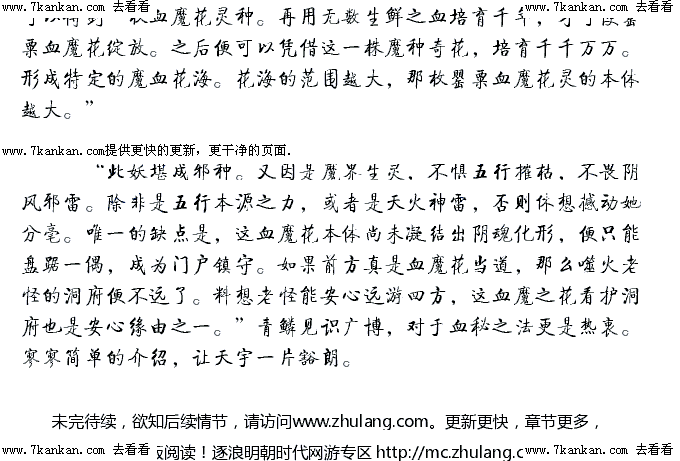 www.7kankan.com 去看看 www.7kankan.com 去看看
血魔花灵种。再用无数生鲜之血培育千年，
粟血魔花绽放。之后便可以凭借这一株魔种奇花，培育千千万万。
形成特定的魔血花海。花海的范围越大，那枚罂粟血魔花灵的本体
越大。”
www.7kankan.com提供更快的更新，更干净的页面.
“此妖堪成邪神。又因是魔界生灵，不惧五行摧枯，不畏阴
风邪雷。除非是五行本源之力，或者是天火神雷，否则休想撼动她
分毫。唯一的缺点是，这血魔花本体尚未凝结出阴魂化形，便只能
盘踞一偶，成为门户镇守。如果前方真是血魔花当道，那么噬火老
怪的洞府便不远了。料想老怪能安心远游四方，这血魔之花看护洞
府也是安心缘由之一。”青鳞见识广博，对于血秘之法更是热衷。
寥寥简单的介绍，让天宇一片豁朗。
未完待续，欲知后续情节，请访问www.zhulang.com。更新更快，章节更多，
www.7kankan.com 去看看 版阅读！逐浪明朝时代网游专区 http://mc.zhulang.co www.7kankan.com 去看看